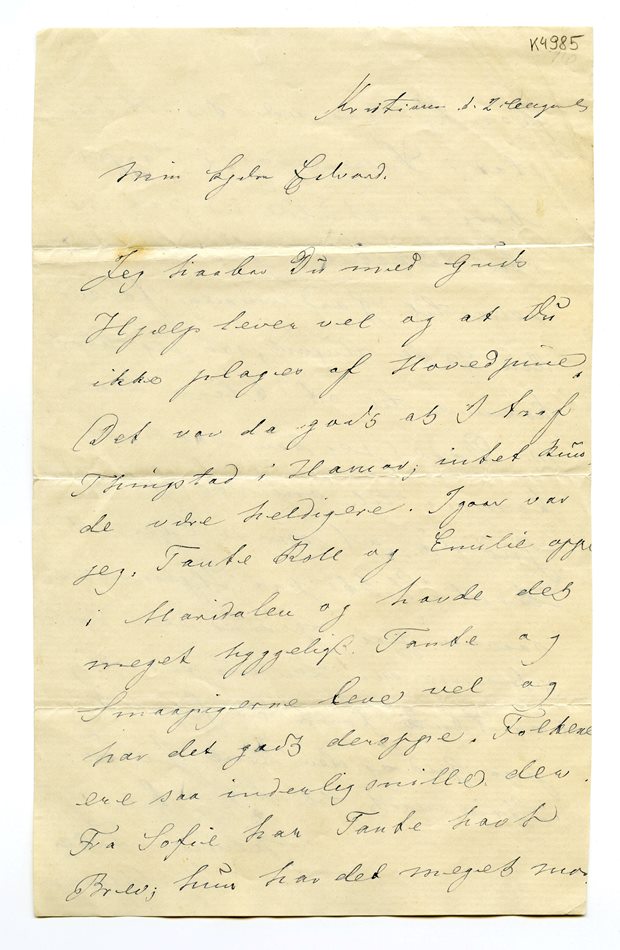 K4985
Kristiania d. 2 August
Min kjære Edvard.
Jeg haaber Du med Guds
Hjælp lever vel og at Du
ikke plages af Hovedpine.
Det var da godt at I traf
Thingstad i Hamar; intet kun
de være heldigere. Igaar var
jeg, Tante Roll og Emilie oppe
i Maridalen og havde det
meget hyggeligt. Tante og
Smaapigerne leve vel og
har det godt deroppe. Folkene
ere saa inderlig snille der.
Fra Sofie har Tante havt
Brev; hun har det meget mor